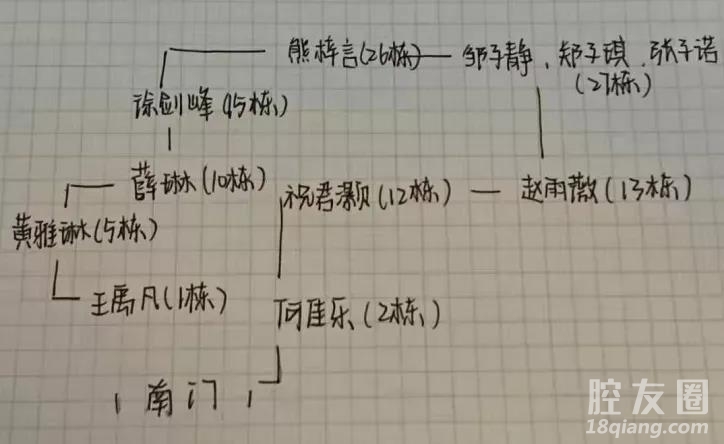 熊梓言(26栋) 邹子静、郑子琪、张子诺
(27栋)
徐剑峰(15栋)
薛琳(10栋) 祝君灏(12栋) 赵雨薇(13栋)
黄雅琳(5栋)
王禹凡(1栋) 何佳乐(2栋)
南门
腔友圈
18qiang.com